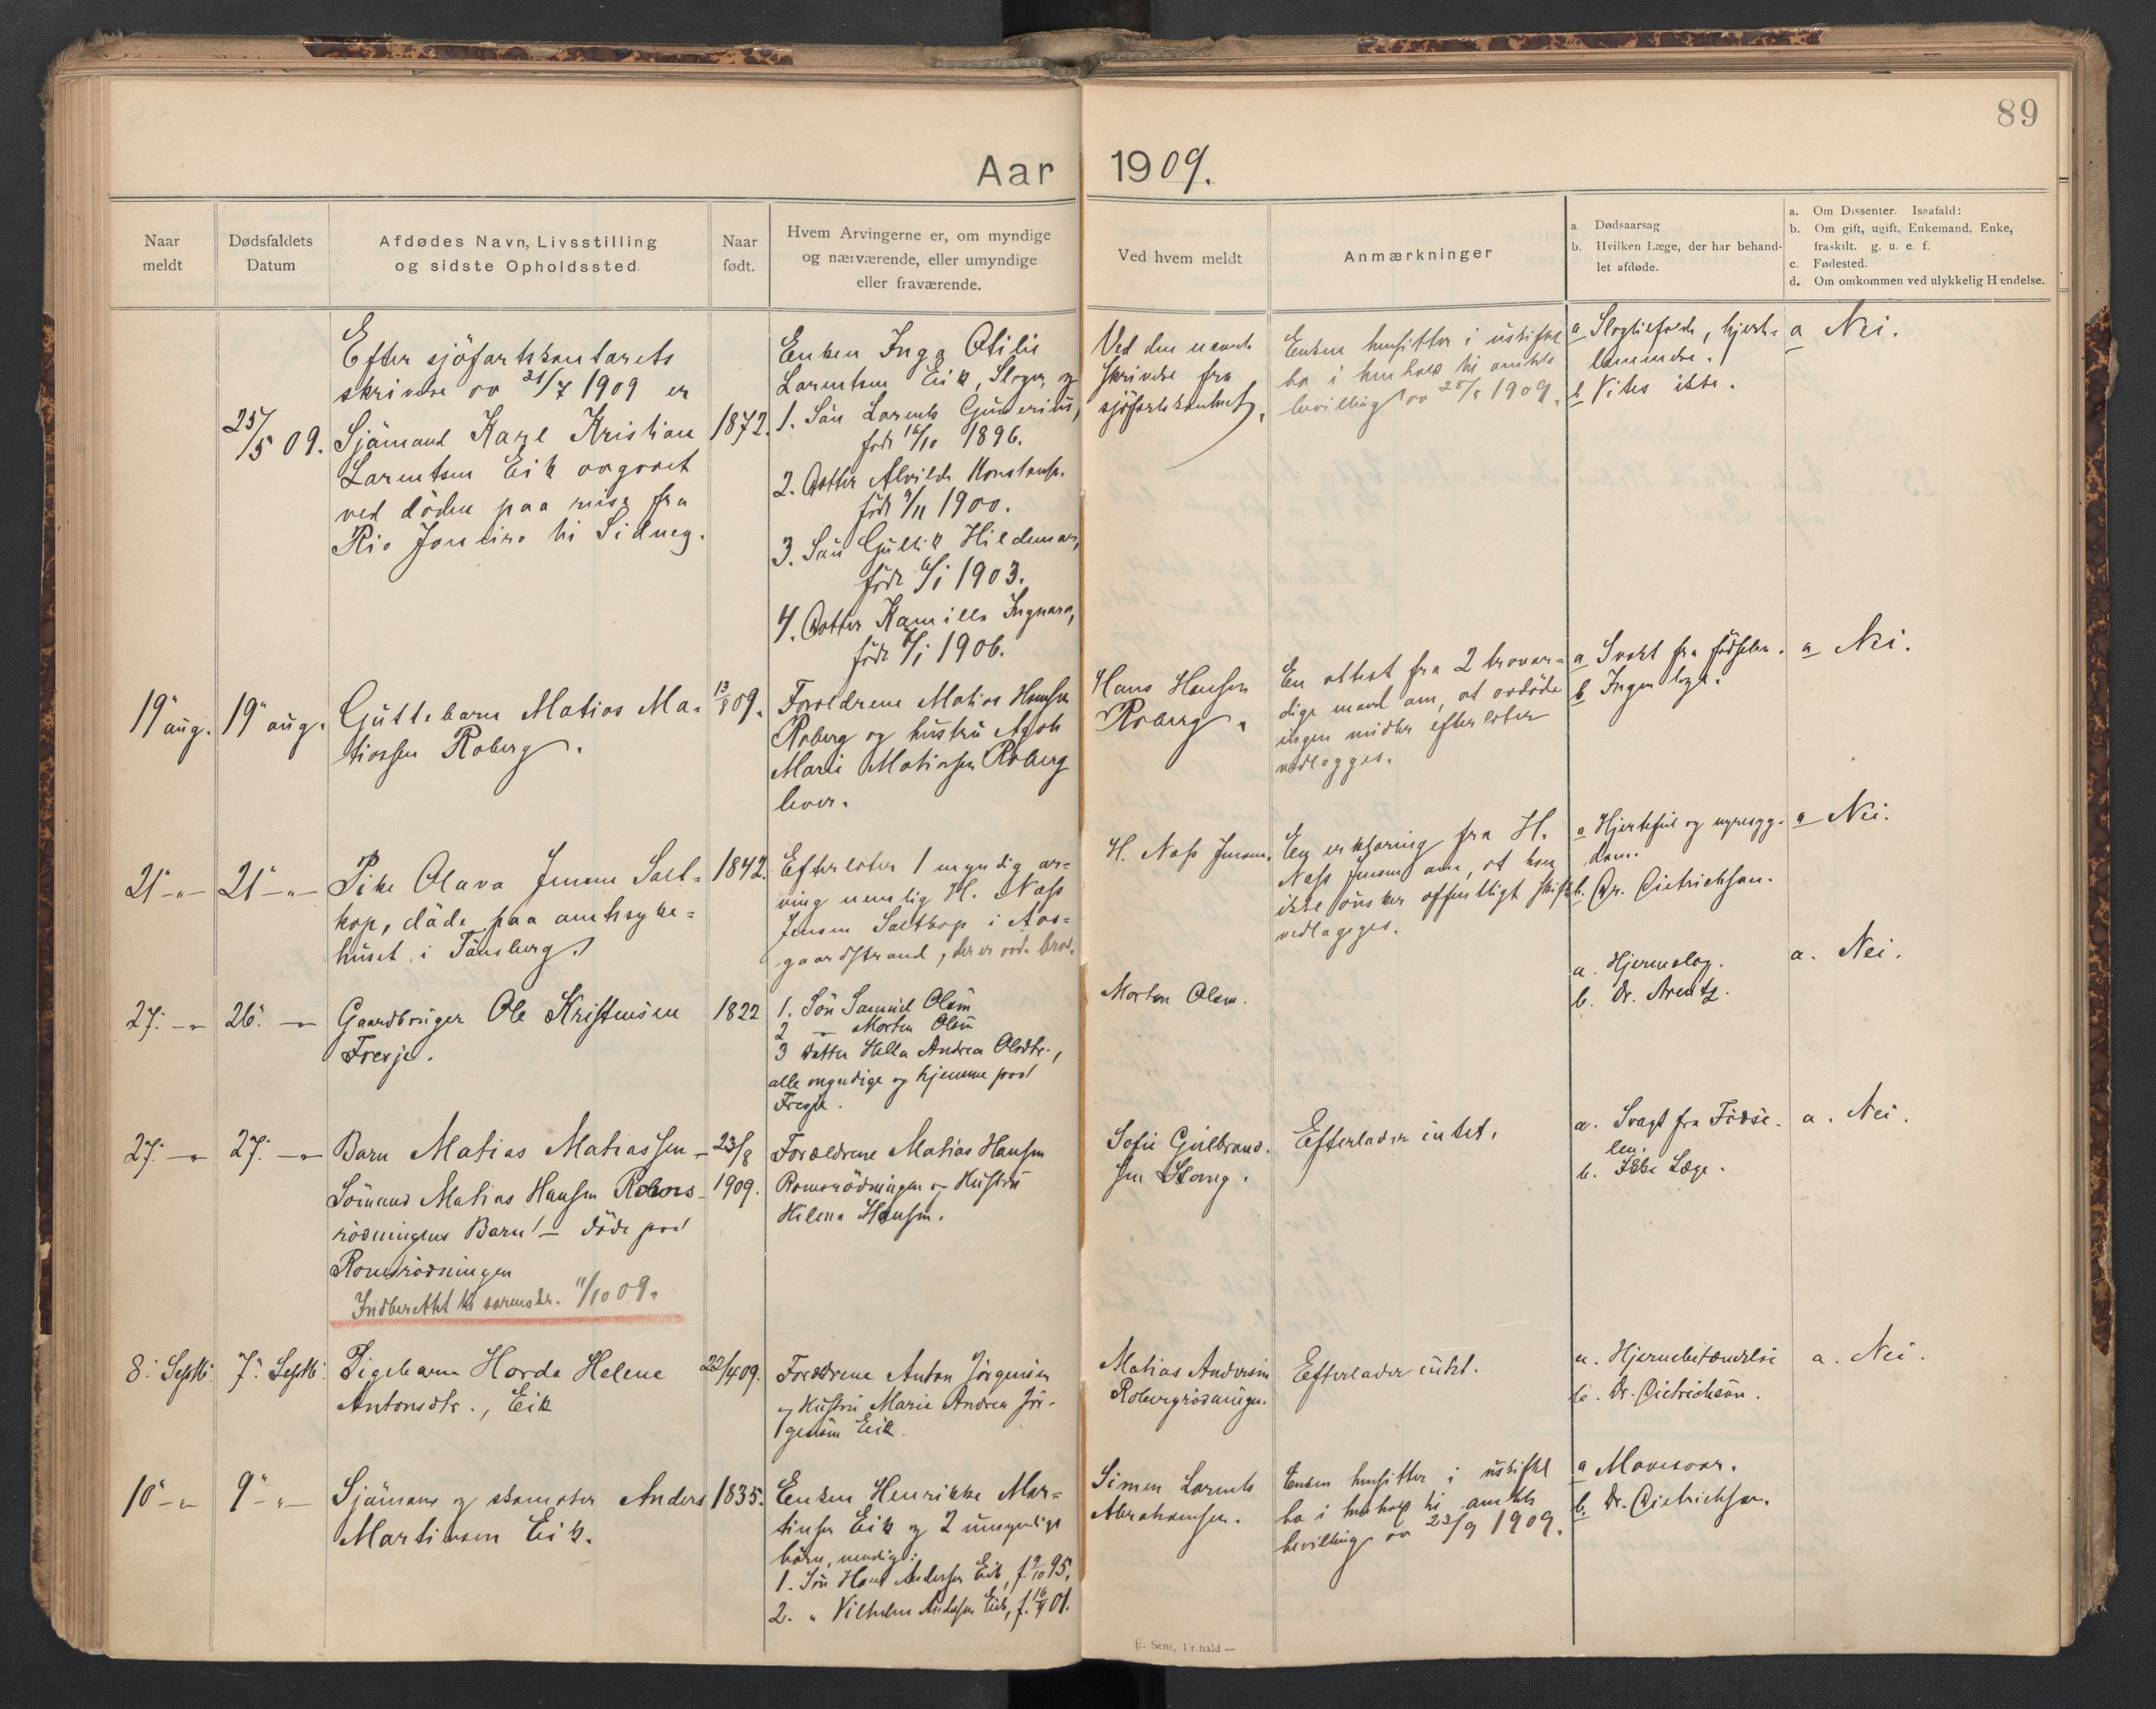 89
Aar 1909.
Naar meldt
Dødsfaldets Datum
Afdødes Navn, Livsstilling og sidste Opholdssted.
Naar født.
Hvem Arvingerne er, om myndige og nærværende, eller umyndige eller fraværende.
Ved hvem meldt
Anmærkninger
a Dødsaarsag
b. Hvilken Læge, der har behandlet afdøde.
a. Om Dissenter. Isaafald:
b. Om gift, ugift, Enkemand, Enke, fraskilt. g. u. e. f.
c. Fødested.
d. Om omkommen ved ulykkelig Hendelse.
25/5 09.
Efter sjöfartskontorets
skrivelse av 21/7 1909 er
Sjömand Karl Kristian
Larentsen Eik avgaaet
ved döden paa reise fra
Rio Janeiro til Sidney.
1872.
Enken Inga Otilie
Larentsen Eik, Slagen, og
1. Sön Larents Gunerius,
födt 16/10 1896.
2. Datter Alvilde Konstanse.
födt 9/11 1900.
3. Sön Gullik Hildemar,
födt 6/1 1903.
4. Datter Kamilla Ingvara,
födt /1 1906.
Ved den nævnte
skrivelse fra
sjöfartskontoret.
Enken hensitter i uskiftet
bo i henhold til amtets
bevilling av 28/8 1909.
a Slagtilfælde, hjerte-
lammelse.
b Vites ikke.
a Nei.
19' aug.
19' aug.
Guttebarn Matias Ma-
tiassen Roberg.
13/8 09.
Forældrene Matias Hansen
Roberg og hustru Agate
Marie Matiassen Roberg
lever.
Hans Hansen
Roberg.
En attest fra 2 trovær-
dige mænd om, at avdöde
ingen midler efterlater
vedlægges.
a Svakt fra födselen.
b Ingen læge.
a Nei.
21' -"-
21' -"-
Pike Olava Jensen Salt-
kop, döde paa amtssyke-
huset i Tönsberg.
1842.
Efterlater 1 myndig ar-
ving nemlig H. Nass
Jensen Saltkop i Aas-
gaardstrand, der er avd. bror.
H. Nass Jensen.
En erklæring fra H.
Nass Jensen om, at han
ikke önsker offentligt skifte
vedlægges.
a Hjertefeil og nyresyg-
dom.
b. Dr. Dietrichson.
a Nei.
27. -"-
26. -"-
Gaardbruger Ole Kristensen
Freyje.
1822
1. Sön Samuel Olsen
2 -"- Morten Olsen
3 Datter Hella Andrea Olsdtr.,
alle myndige og hjemme paa
Morten Olsen.
a. Hjerneslag.
b. Dr. Arentz.
a. Nei.
27. -"-
27. -"-
Barn Matias Matiassen -
Sömand Matias Hansen Roms-
rödningens Barn - döde paa
Romsrödningen
Indberettet til sorenskr. 11/10 09.
23/8
1909.
Forældrene Matias Hansen
Romsrödningen og Hustru
Helene Hansen.
Sofie Gulbrand-
sen Stang.
Efterlader intet.
a. Svagt fra Födse-
len.
b. Ikke Læge.
a. Nei.
8. Septb.
7. Septb.
Pigebarn Horda Helene
Antonsdtr., Eik
22/4 09.
Forældrene Anton Jörgensen
og Hustru Marie Andrea Jör-
gensen Eik.
Matias Andersen
Robergrödningen.
Efterlader intet.
a. Hjernebetændelse
b. Dr. Dietrichson.
a. Nei.
10' -"-
9' -"-
Sjömand og skomaker Anders
Martinsen Eik.
1835.
Enken Henrikke Mar-
tinsen Eik og 2 umyndige
börn, nemlig:
1. Sön Hans Andersen Eik, f. 9/10 95,
2. " Vilhelm Andersen Eik, f. 16/9 01.
Simen Larents
Abrahamsen.
Enken hensitter i uskiftet
bo i henhold til amtets
bevilling av 23/9 1909.
a Mavesaar.
b. Dr. Dietrichson.
E. Sem, Fr.hald —